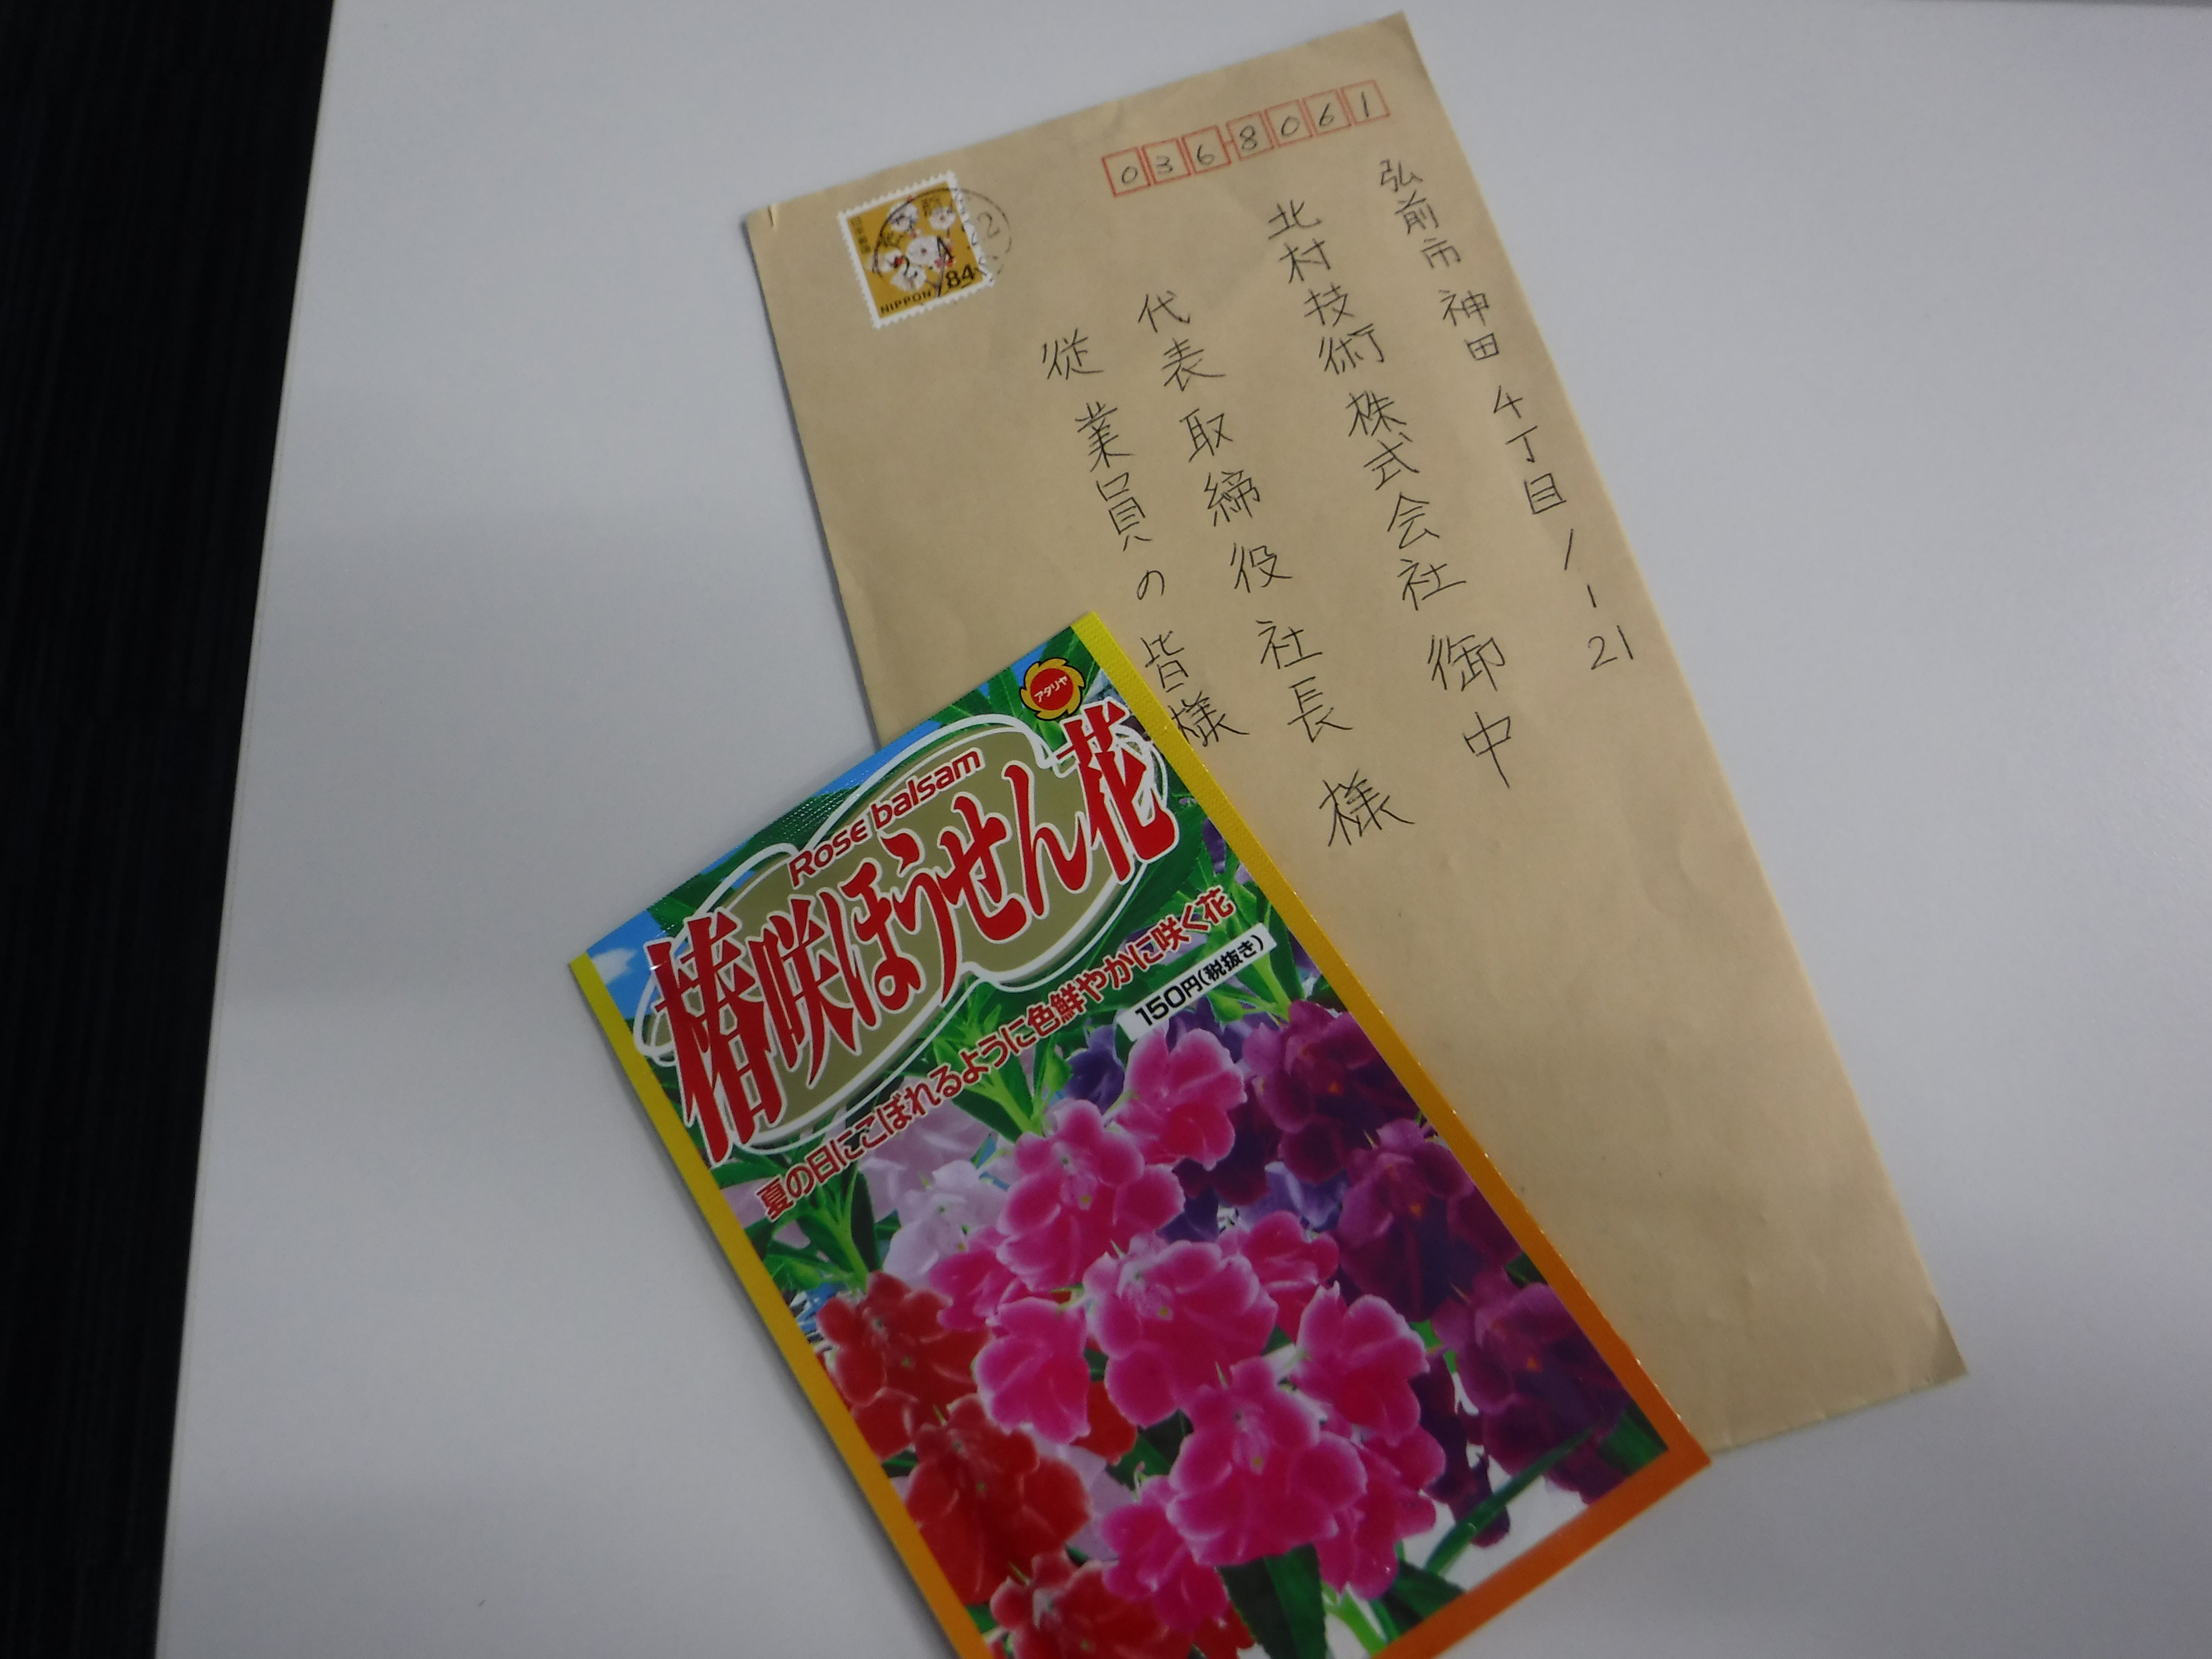 0368061
弘前市神田4丁目1-21
北村技術株式会社御中
代表取締役社長様
従業員の皆様
日本郵便
84
NIPPON
アタリヤ
Rose balsam
椿咲ほうせん花
夏の日にこぼれるように色鮮やかに咲く花
150円(税抜き)